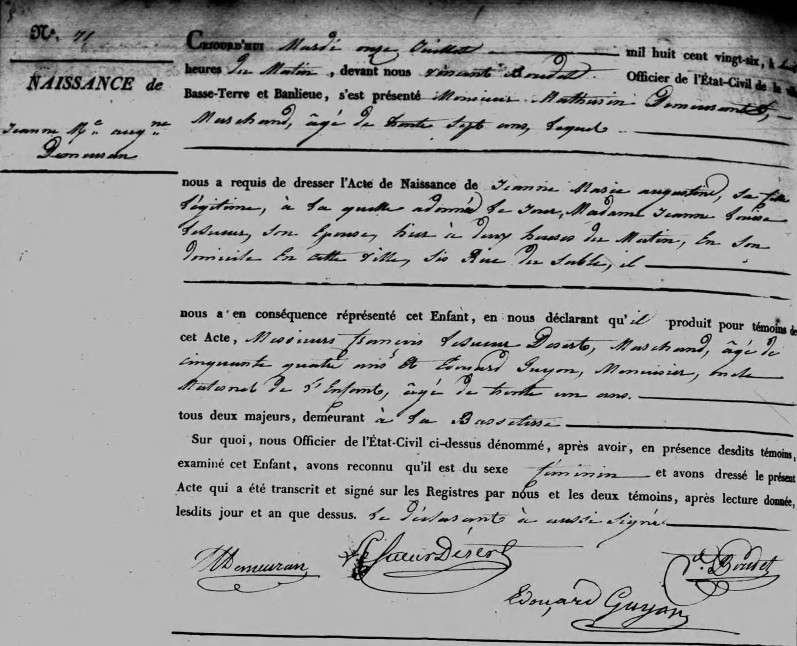 N.º 71
NAISSANCE de
Jeanne M.ie aug.ne
Demeuran
CEJOURD'HUI Mardi onze Juillet mil huit cent vingt-six, à
heures du Matin, devant nous Vincent Boudet Officier de l'État-Civil de la ville
Basse-Terre et Banlieue, s'est présenté Monsieur Mathurin Demeurant,
Marchand, âgé de trente Sept ans, lequel
nous a requis de dresser l'Acte de Naissance de Jeanne Marie augustine, Sa fille
légitime, à la quelle a donné le Jour, Madame Jeanne Louise
Lesueur, Son Epouse, hier à deux heures du Matin, En Son
domicile En cette Ville, Sis Rue du Sable, il
nous a en conséquence réprésenté cet Enfant, en nous déclarant qu'il produit pour témoins de
cet Acte, Messieurs françois Lesueur Desert, Marchand, âgé de
cinquante quatre ans Et Edouard Guyon, Menuisier, oncle
Maternel de l'Enfant, âgé de trente un ans.
tous deux majeurs, demeurant à la Basseterre
Sur quoi, nous Officier de l'État-Civil ci-dessus dénommé, après avoir, en présence desdits témoins,
examiné cet Enfant, avons reconnu qu'il est du sexe féminin et avons dressé le présent
Acte qui a été transcrit et signé sur les Registres par nous et les deux témoins, après lecture donnée,
lesdits jour et an que dessus. Le déclarant à aussi Signé
MDemeuran LeSueur Désert V.t Boudet
Edouard Guyon